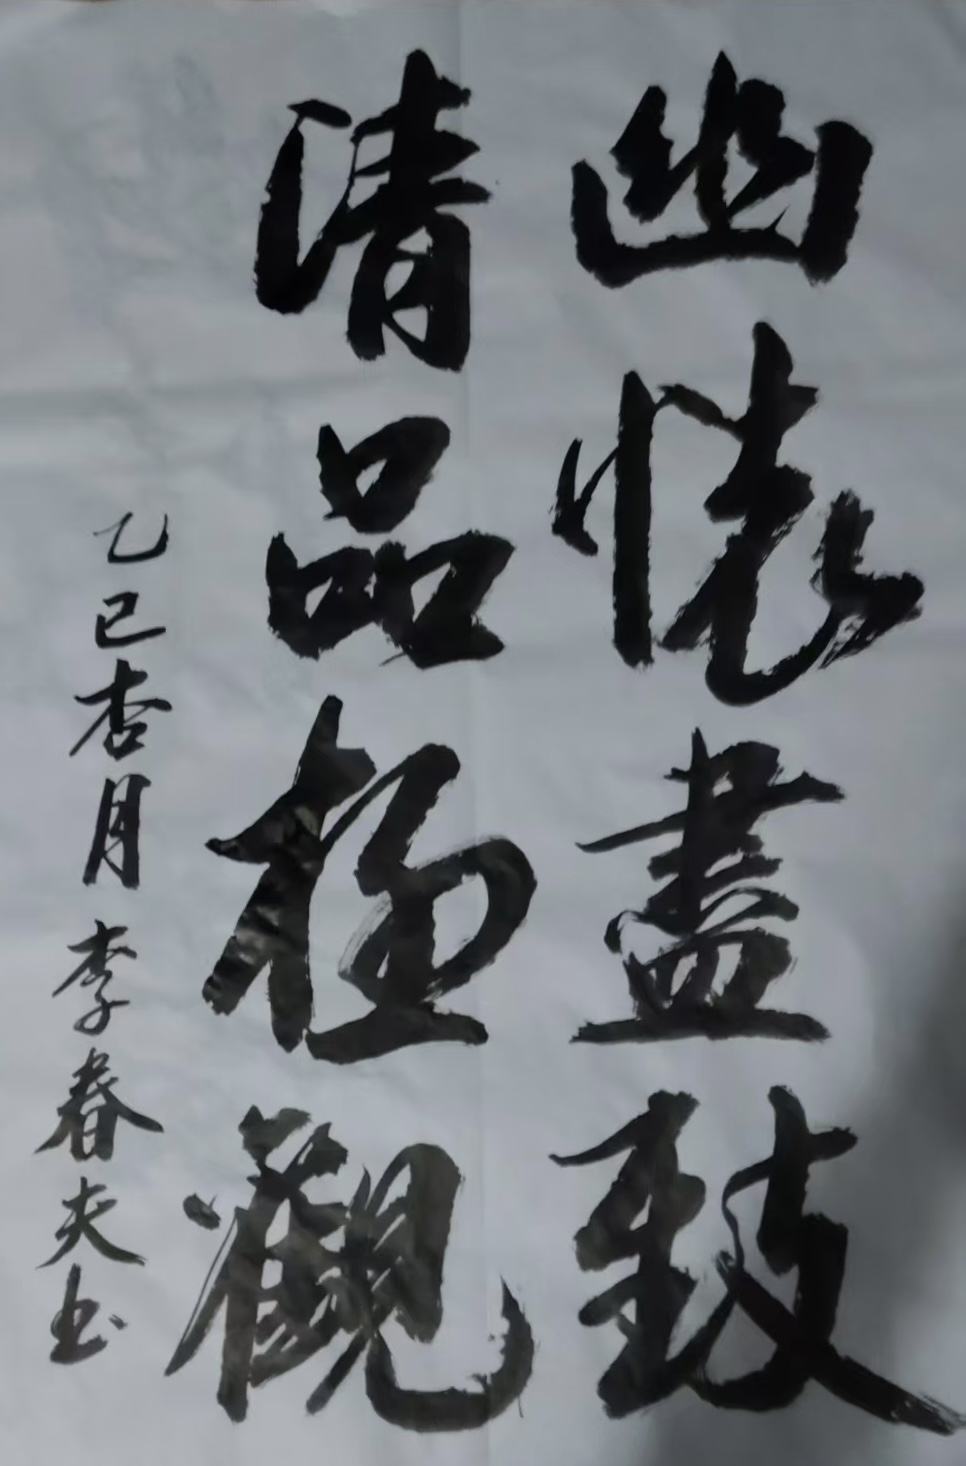 幽懷盡致
清品極觀
乙巳杏月李春夫书